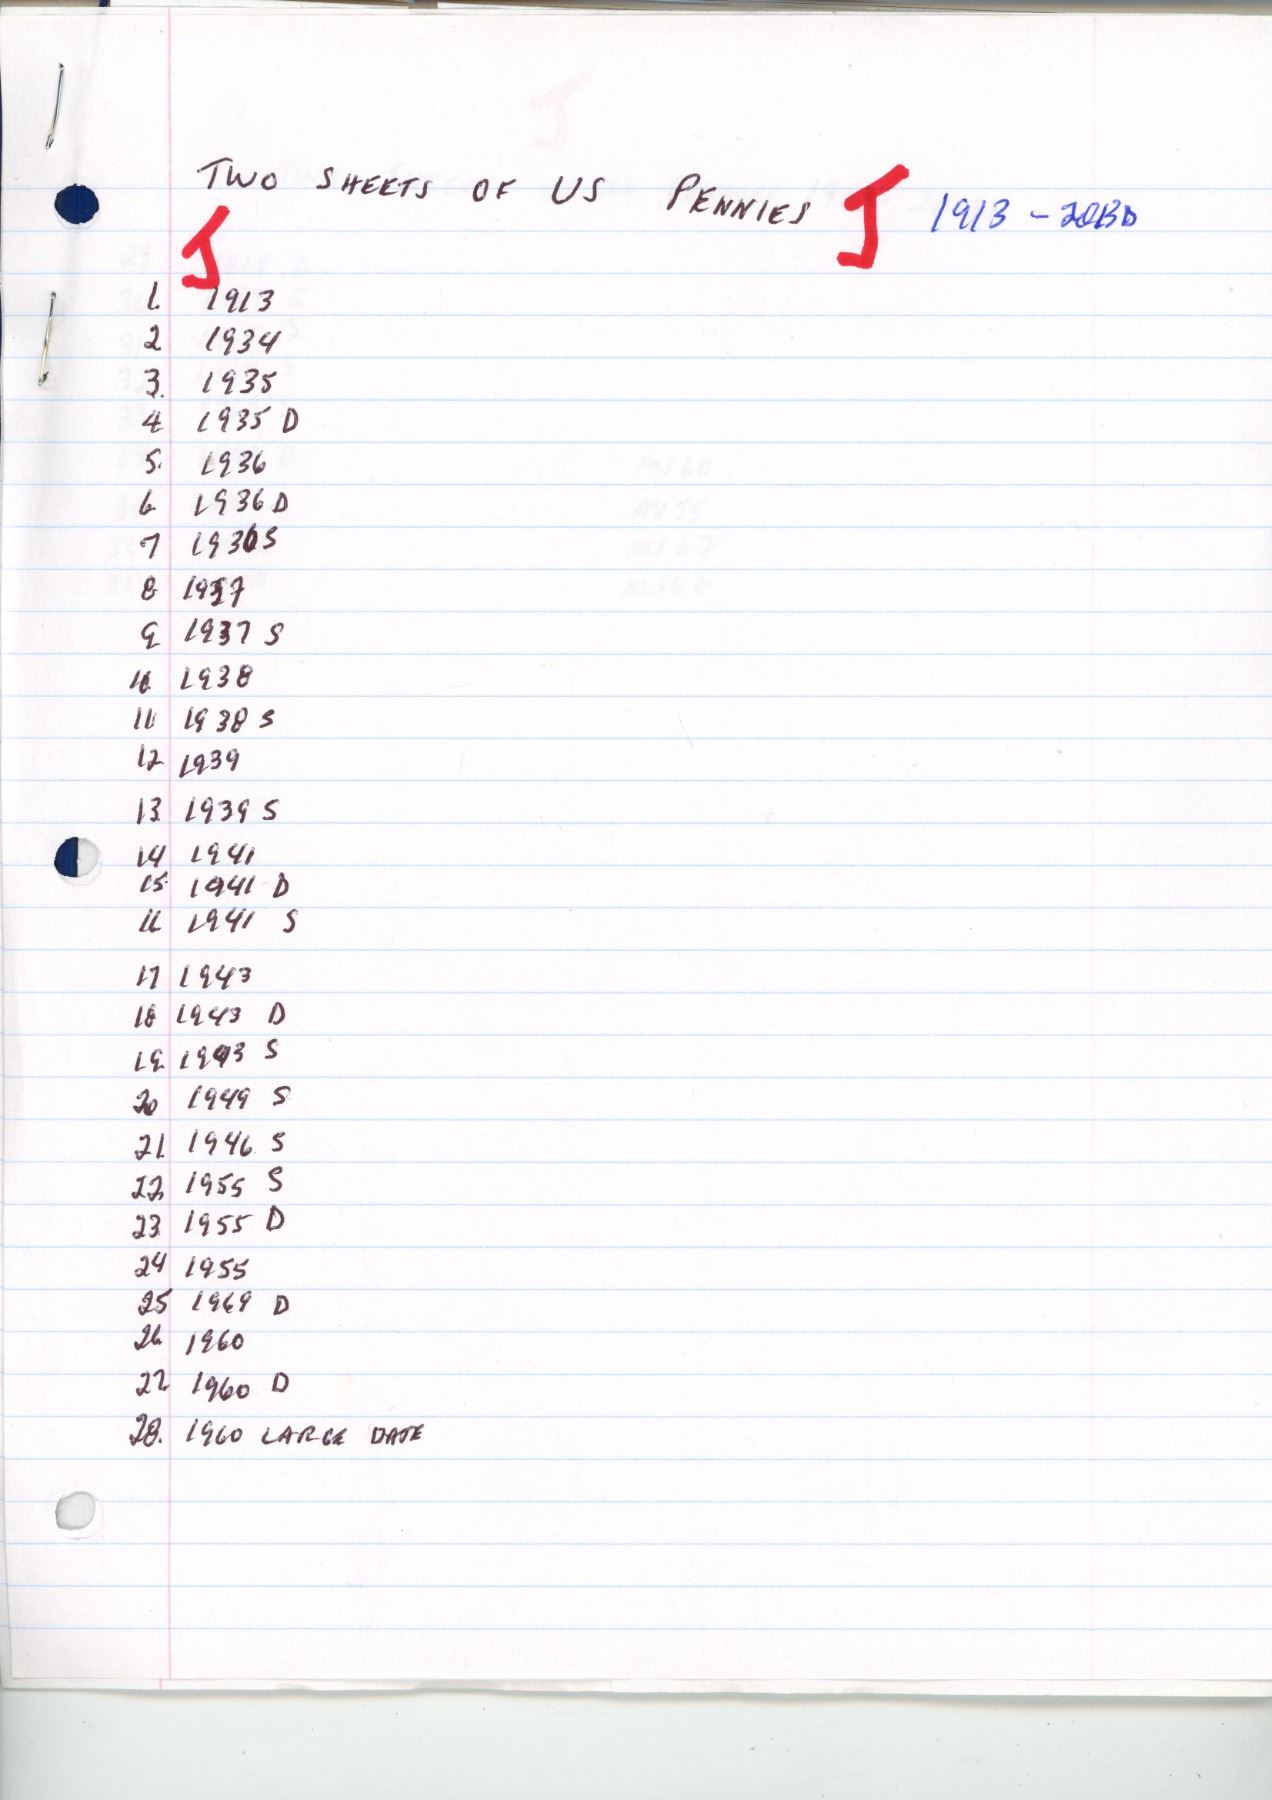 TWO SHEETS OF US PENNIES J 1913 - 2013D
J
1. 1913
2 1934
3. 1935
4 1935 D
5. 1936
6 1936 D
7 1936 S
8 1937
9 1937 S
10. 1938
11 1938 S
12 1939
13 1939 S
14 1941
15 1941 D
16 1941 S
17 1943
18 1943 D
19 1943 S
20 1949 S
21 1946 S
22 1955 S
23 1955 D
24 1955
25 1969 D
26 1960
27 1960 D
28. 1960 LARGE DATE